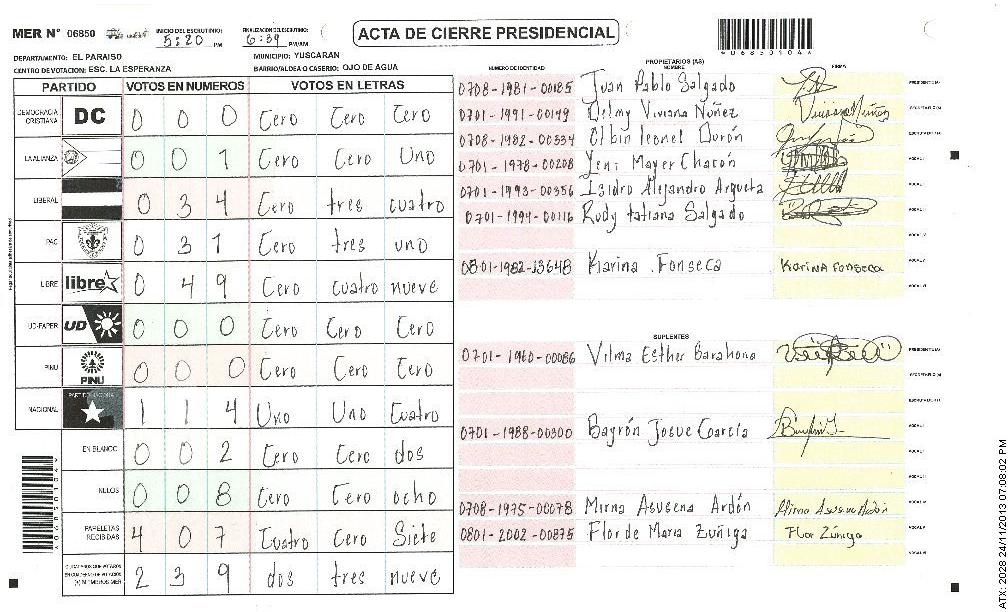 MER N° 06850 INICIO DEL ESCRUTINIO: 5:20 PM FINALIZACION DEL ESCRUTINIO: 6:39 PM/AM ACTA DE CIERRE PRESIDENCIAL
DEPARTAMENTO: EL PARAISO MUNICIPIO: YUSCARAN
CENTRO DE VOTACION: ESC. LA ESPERANZA BARRIO/ALDEA O CASERIO: OJO DE AGUA
PARTIDO VOTOS EN NUMEROS VOTOS EN LETRAS
DEMOCRACIA CRISTIANA DC 0 0 0 Cero Cero Cero
LA ALIANZA 0 0 1 Cero Cero Uno
LIBERAL 0 3 4 Cero tres cuatro
PAC 0 3 1 Cero tres uno
LIBRE libre 0 4 9 Cero cuatro nueve
UD-FAPER UD 0 0 0 Cero Cero Cero
PINU PINU 0 0 0 Cero Cero Cero
NACIONAL 1 1 4 Uno Uno Cuatro
EN BLANCO 0 0 2 Cero Cero dos
NULOS 0 0 8 Cero Cero ocho
PAPELETAS RECIBIDAS 4 0 7 Cuatro Cero Siete
2 3 9 dos tres nueve
NUMERO DE IDENTIDAD PROPIETARIOS (AS) NOMBRE FIRMA
0708-1981-00185 Juan Pablo Salgado
0701-1991-00149 Delmy Viviana Núñez
0708-1982-00334 Olbin leonel Durón
0701-1978-00208 Yeni Mayer Chacón
0701-1993-00356 Isidro Alejandro Argueta
0701-1994-00116 Rudy tatiana Salgado
0801-1982-13648 Karina Fonseca Karina Fonseca
SUPLENTES
0701-1960-00086 Vilma Esther Barahona
0701-1988-00300 Bayrón Josue Goarcía
0708-1975-00078 Mirna Asusena Ardón Mirna Asusena Ardón
0801-2002-00875 Flor de Maria Zuñiga Flor Zúniga
ATX: 2028 24/11/2013 07:08:02 PM